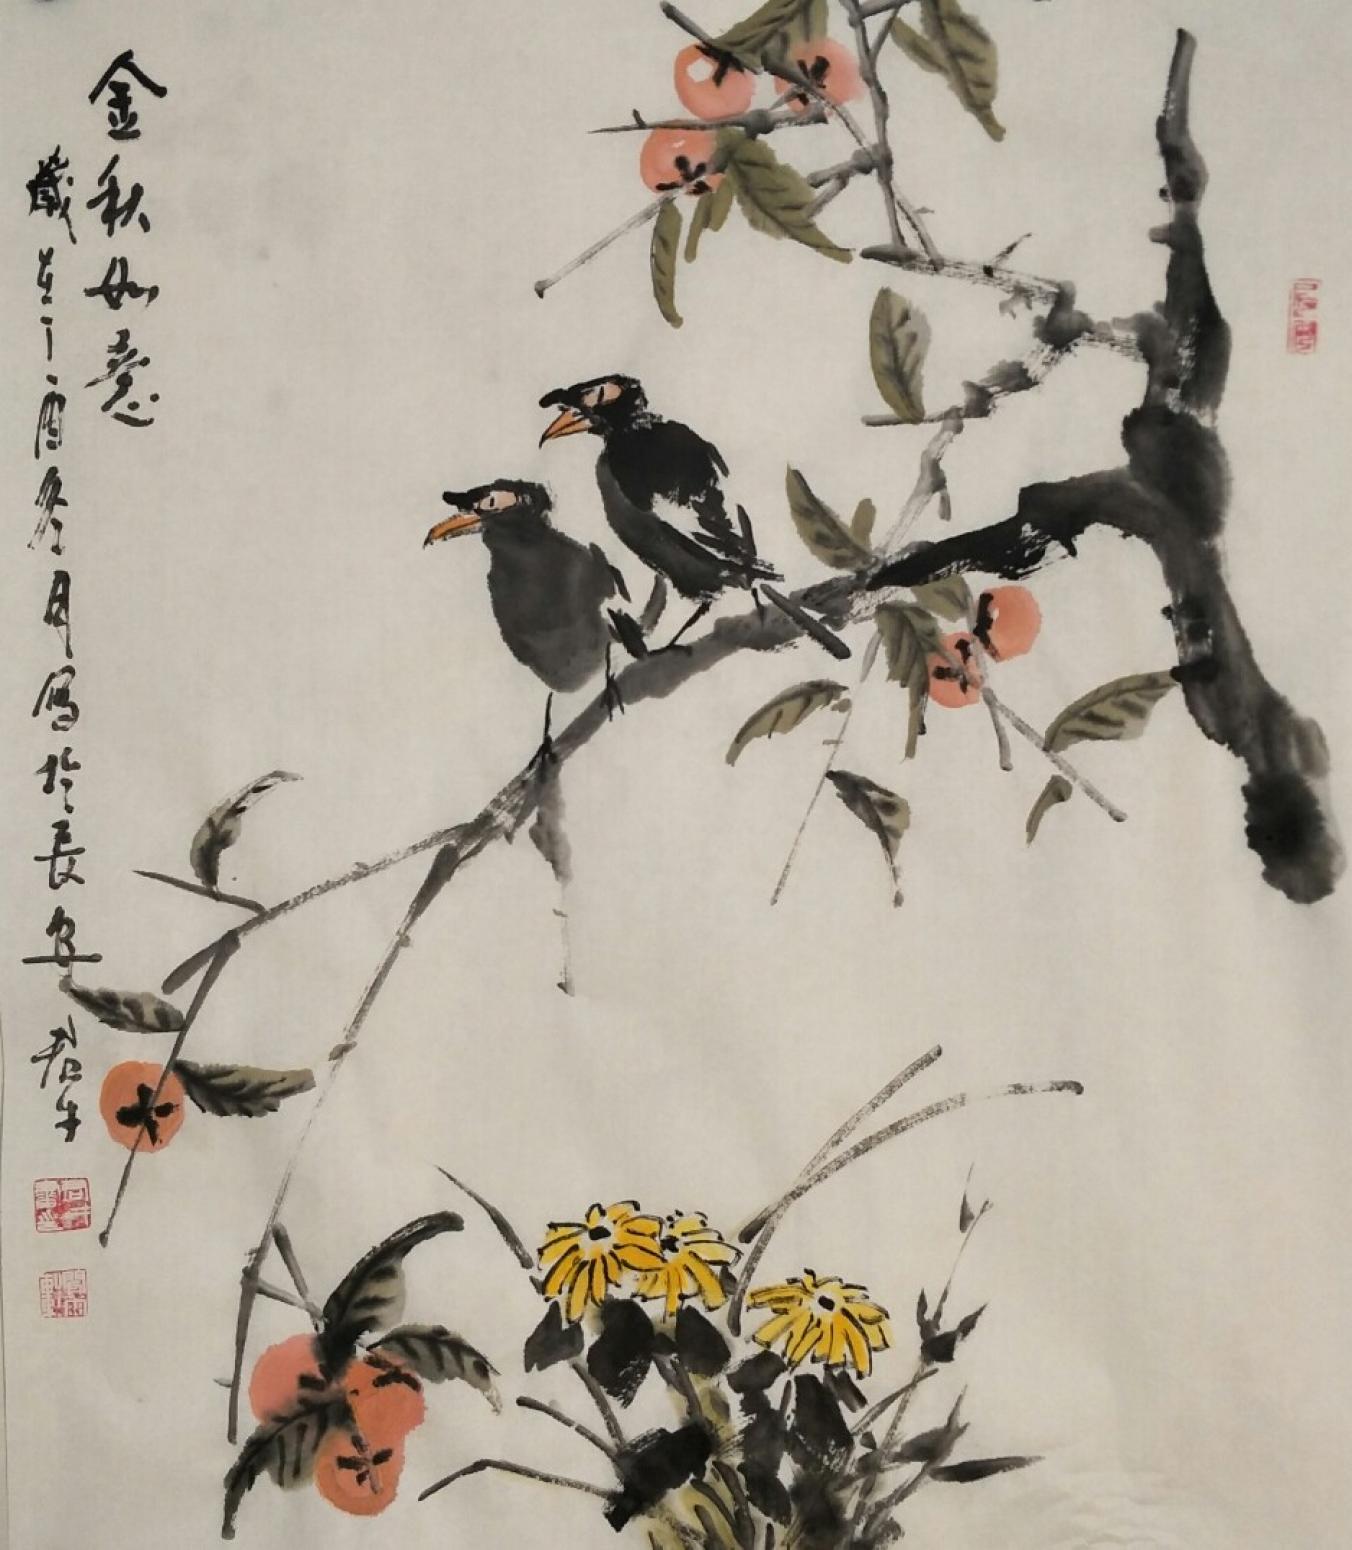 金秋如意
歲在丁酉冬月寫於長安
君牛